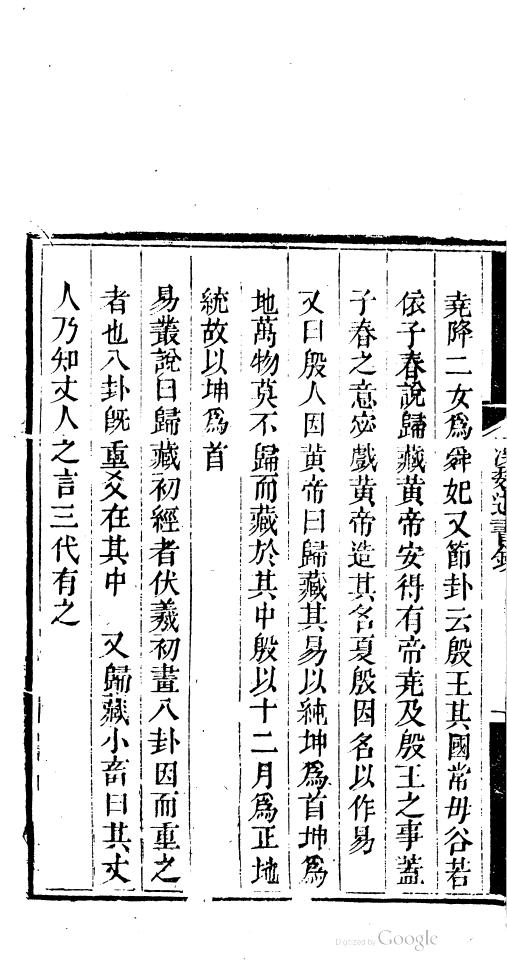 堯降二女爲舜妃又節卦云殷王其國常毋谷若
依子春說歸藏黃帝安得有帝堯及殷王之事蓋
子春之意宓戲黃帝造其名夏殷因名以作易
又曰殷人因黃帝曰歸藏其易以純坤爲首坤爲
地萬物莫不歸而藏於其中殷以十二月爲正地
統故以坤爲首
易叢說曰歸藏初經者伏羲初畫八卦因而重之
者也八卦旣重爻在其中　又歸藏小畜曰其丈
人乃知丈人之言三代有之
Digitized by Google